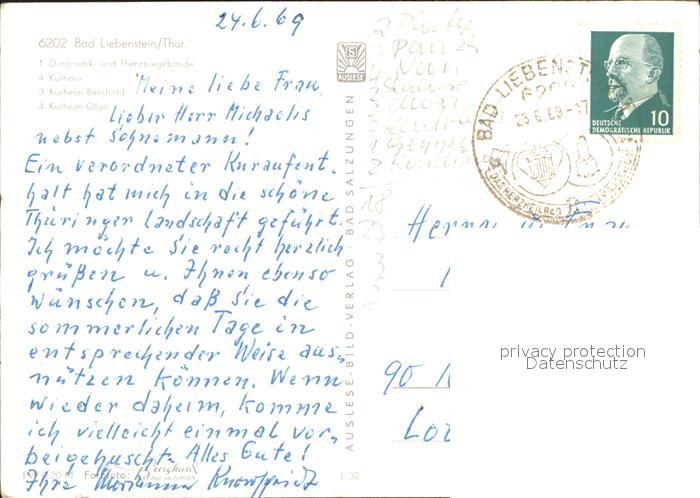 24.6.69
6202 Bad Liebenstein/Thür.
1 Diagnostik- und Therapiegebäude
4 Kurhaus
3 Kurheim Bernhard
4 Kurheim Olga
Meine liebe Frau,
lieber Herr Michaelis
nebst Sohnemann!
Ein verordneter Kuraufent-
halt hat mich in die schöne
Thüringer Landschaft geführt.
Ich möchte Sie recht herzlich
grüßen u. Ihnen ebenso
wünschen, daß Sie die
sommerlichen Tage in
entsprechender Weise aus-
nützen können. Wenn
wieder daheim, komme
ich vielleicht einmal vor-
beigehuscht. Alles Gute!
Ihre Marianna
Foto: Burghard
BAD SALZUNGEN
L 32
AUSLESE
AUSLESE-BILD-VERLAG · BAD SALZUNGEN
BAD LIEBENST
DAS HERZHEILBAD
10
DEUTSCHE
DEMOKRATISCHE REPUBLIK
18
23
3
Herrn u. Frau
90
privacy protection
Datenschutz